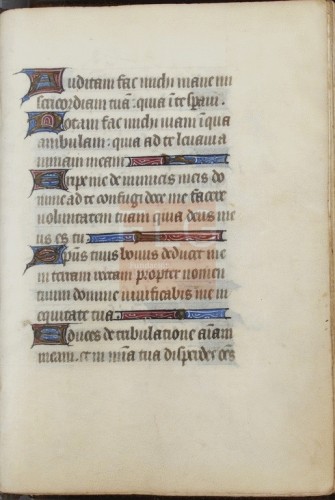 Auditam fac michi mane mi
sericordiam tuã: quia ĩ te spaui.
Notam fac michi uiam ĩ qua
ambulam: quia ad te leuaui a
nimam meam
Eripe me de inimicis meis do
mine ad te confugi doce me facere
uoluntatem tuam quia deus me
us es tu
Spũs tuus bonus deducet me
in terram rectam propter nomen
tuum domine uiuificabis me in
equitate tua
Educes de tribulatione aĩam
meam. et in mĩa tua disperdes oẽs